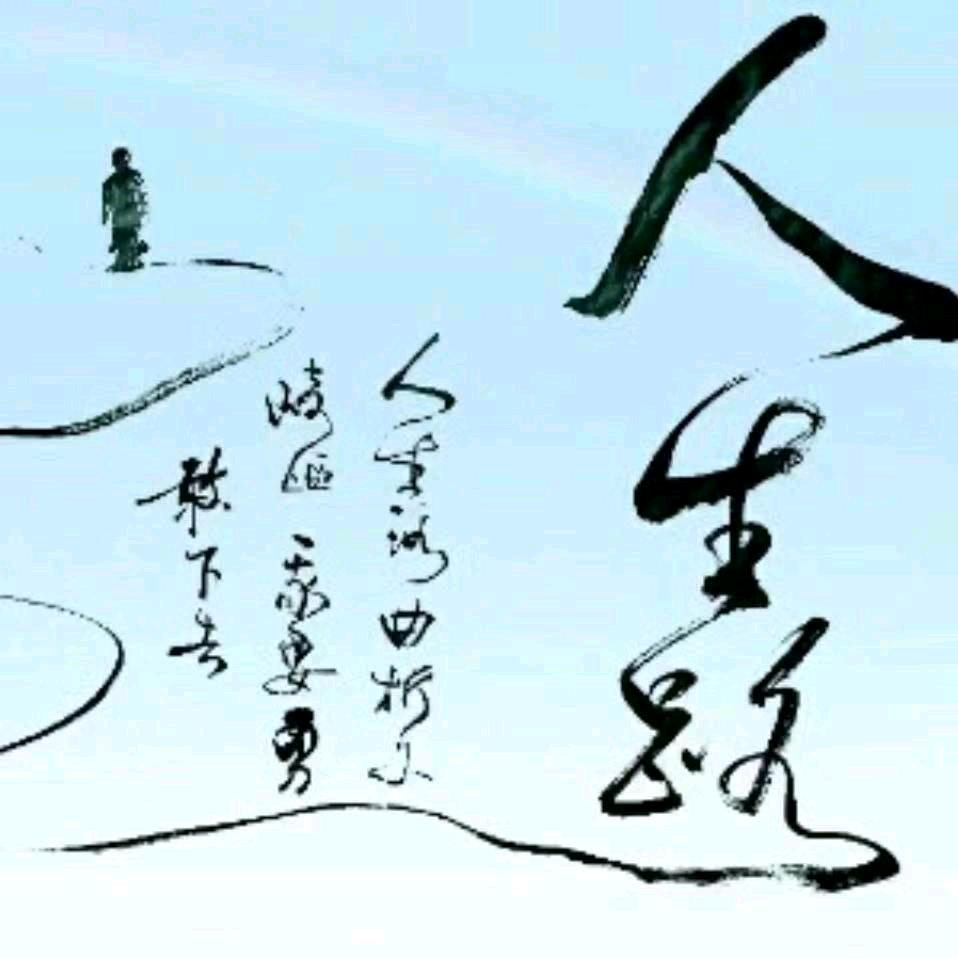 人生路
人生路曲折
崎岖要勇
敢下去